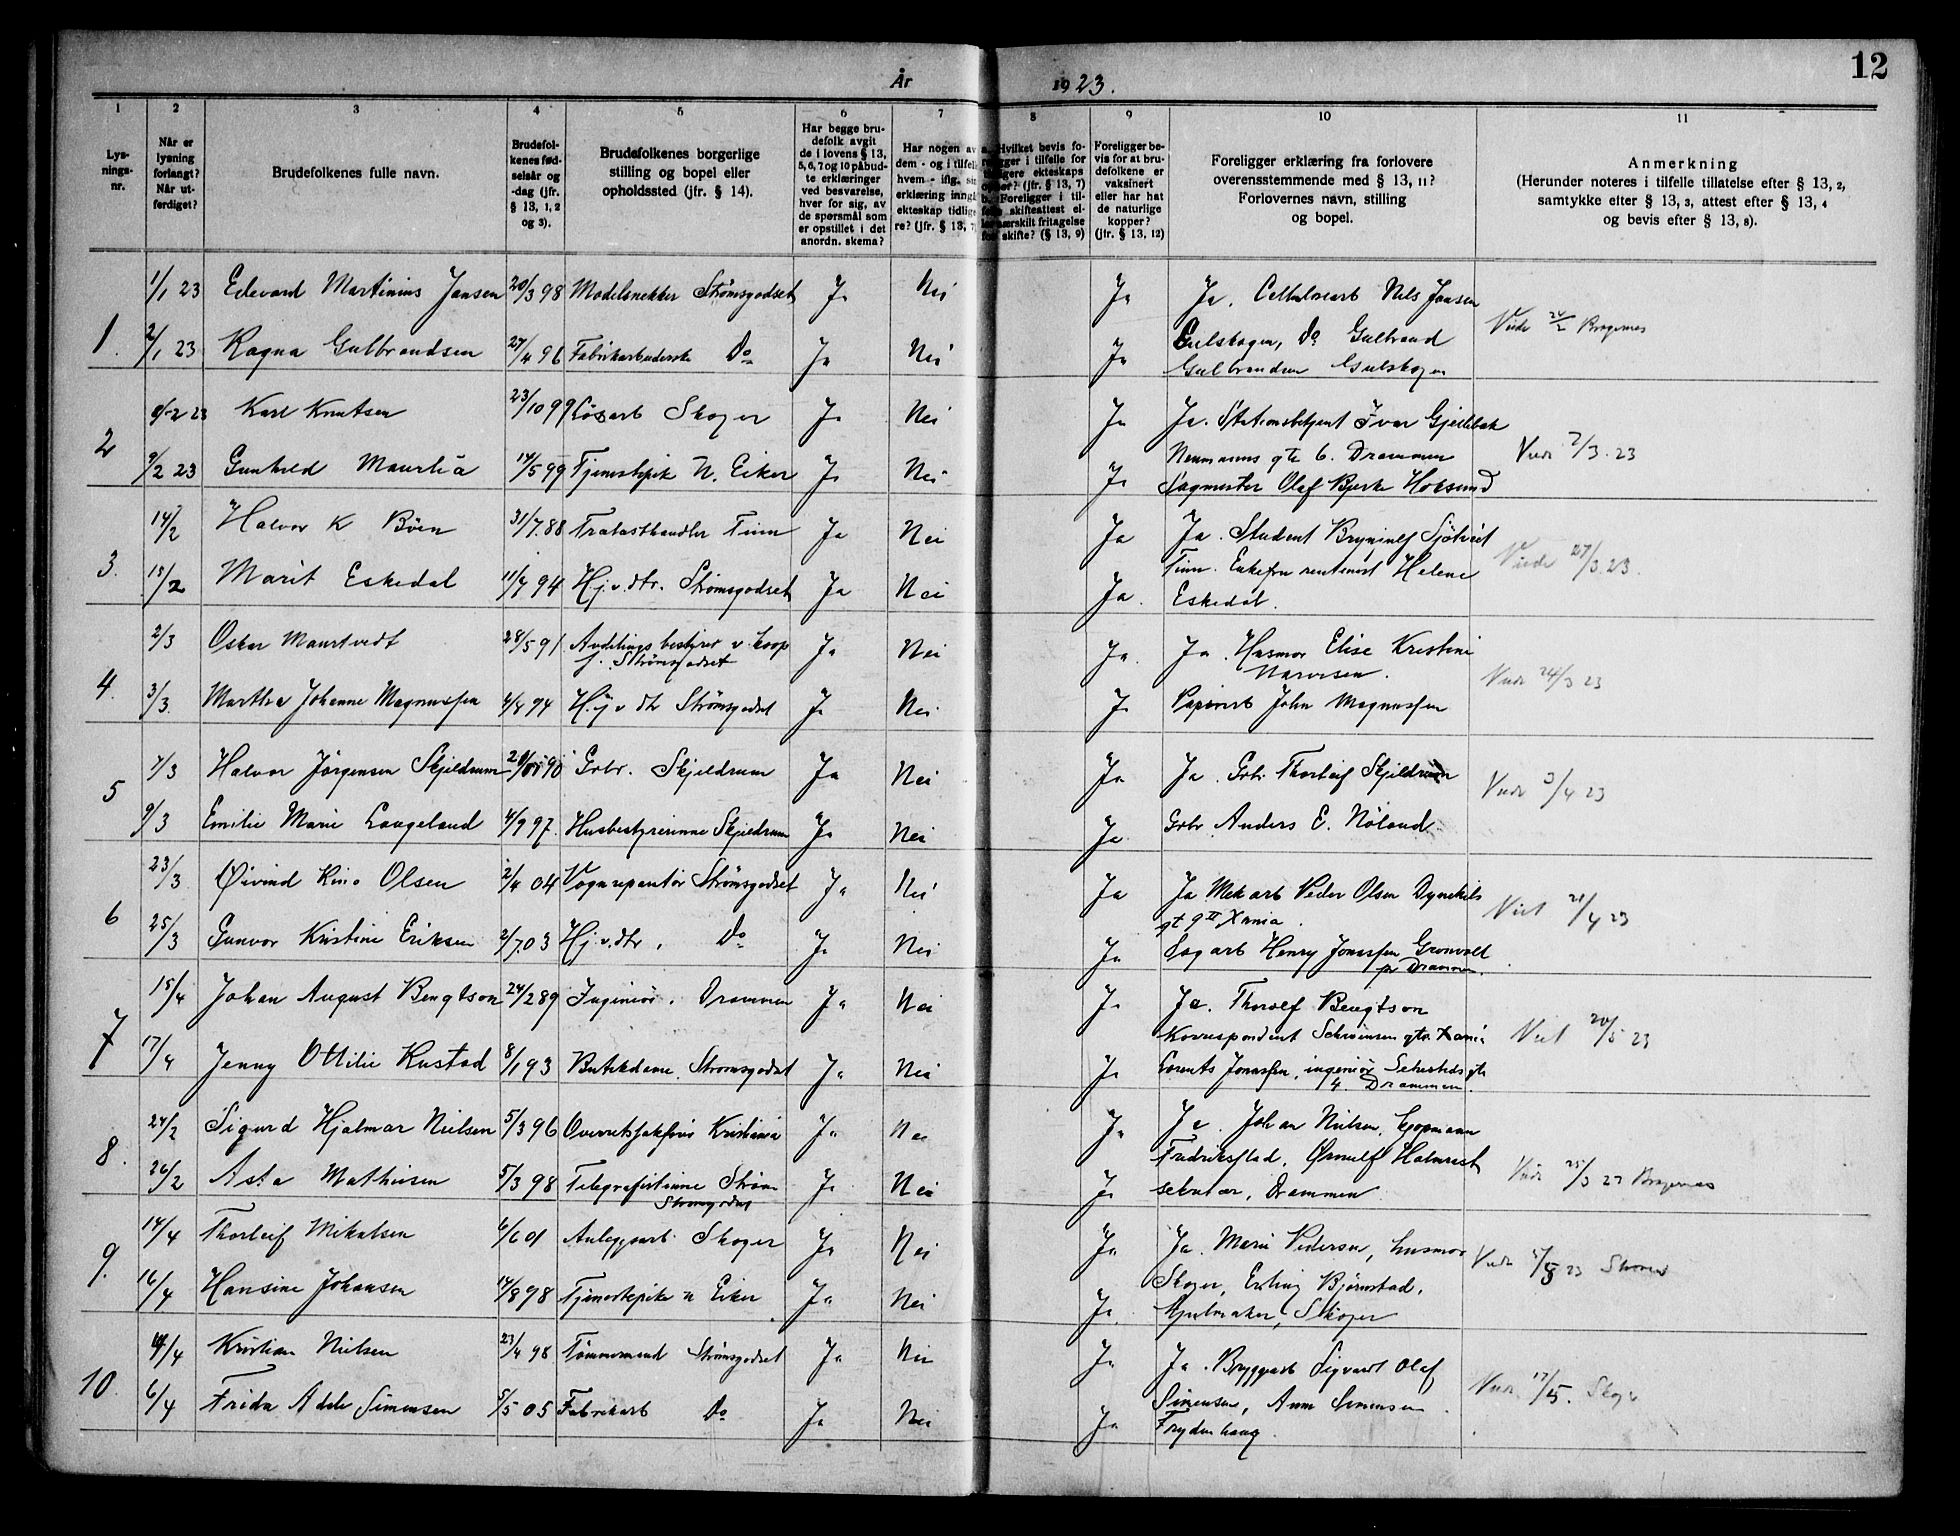 12
År 1923.
1 2 3 4 5 6 7 8 9 10 11
Lysningsnr.
Når er lysning forlangt? Når utferdiget?
Brudefolkenes fulle navn.
Brudefolkenes fødselsår og -dag (jfr. § 13, 1, 2 og 3).
Brudefolkenes borgerlige stilling og bopel eller opholdssted (jfr. § 14).
Har begge brudefolk avgit de i lovens § 13, 5, 6, 7 og 10 påbudte erklæringer ved besvarelse, hver for sig, av de spørsmål som er opstillet i det anordn. skema?
Har nogen av dem - og i tilfelle hvem - iflg. sin erklæring inngått ekteskap tidligere? (jfr. § 13, 7)
Hvilket bevis foreligger i tilfelle for tidligere ekteskaps ophør? (jfr. § 13, 7) b. Foreligger i tilfelle skifteattest eller særskilt fritagelse for skifte? (§ 13, 9)
Foreligger bevis for at brudefolkene er vaksinert eller har hat de naturlige kopper? (jfr. § 13, 12)
Foreligger erklæring fra forlovere overensstemmende med § 13, 11? Forlovernes navn, stilling og bopel.
Anmerkning (Herunder noteres i tilfelle tillatelse efter § 13, 2, samtykke efter § 13, 3, attest efter § 13, 4 og bevis efter § 13, 8).
1. 1/1 23 Edevard Martinius Jansen 20/3 98 Modelsnekker Strømsgodset Ja Nei Ja Ja. Cellulosearb Nils Jansen
2/1 23 Ragna Gulbrandsen 27/4 96 Fabrikarbeiderske Do Ja Nei Ja Gulskogen, Do Gulbrand
Gulbrandsen Gulskogen
Viede 24/2 Bragernes
2 8/2 23 Karl Knutsen 23/10 99 Løsarb Skoger Ja Nei Ja Ja. Stationsbetjent Ivar Gjellebæk
9/2 23 Gunhild Maurlia 14/5 99 Tjenestepike N. Eiker Ja Nei Ja Neumanns gte 6. Drammen
Sagmester Olaf Bjerke Hoksund
Viede 7/3. 23
3. 14/2 Halvor K Bøen 31/7. 88 Trælasthandler Tinn Ja Nei Ja Ja. Student Brynjulf Sjøtveit
15/2 Marit Eskedal 11/7 94 Hj. v. dtr. Strømsgodset Ja Nei Ja. Tinn. Enkefru rentenist Helene
Eskedal.
Viede 27/3. 23.
4. 2/3 Oskar Maurtvedt 28/5 91 Avdelings bestyrer v. koop
f. Strømsgodset Ja Nei Ja. Ja. Husmor Elise Kristine
3/3. Martha Johanne Magnussen 4/8 94 Hj v dtr Strømsgodset Ja Nei Ja Papirarb John Magnussen
Viede 24/3 23
5 7/3 Halvor Jørgensen Skjeldrum 90 Grbr. Skjeldrum Ja Nei Ja Ja. Grbr. Thorleif Skjeldrum
9/3 Emilie Marie Langeland 4/9 97. Husbestyrerinne Skjeldrum Ja Nei Ja Grbr. Anders E. Nøland.
Viede 3/4 23
6 23/3 Øivind Olsen 2/4 04 Vognreparatør Strømsgodset Ja Nei Ja Ja Mek arb Peder Olsen Dynekils
gt 9 II Xania.
25/3 Gunvor Kristine Eriksen 2/7 03 Hj. v. dtr. Do Ja Nei Ja Sag arb Henry Jonassen Grønvold
pr Drammen.
Viet 21/4 23
7 15/4 Johan August Bengtson 24/2 89 Ingeniør. Drammen Ja Nei Ja Ja. Thorolf Bengtson
Korrespondent Schwensen gtr. Xania
17/4 Jenny Ottilie Rustad 8/1 93 Butikdame. Strømsgodset Ja Nei Ja Lorents Jonassen, ingeniør Sehesteds gt
4. Drammen
Viet 20/5 23
8. 24/2 Sigurd Hjalmar Nielsen 5/3 96 Overretssakfører Kristiania Ja Nei Ja Ja. Johan Nielsen, kjøpmann
26/2 Asta Mathisen 5/3 98 Telegrafistinne Strøm
Strømsgodset Ja Nei Ja Fredrikstad, Ørnulf Halvrest
sekretær, Drammen.
Viede 25/3 23 Bragernes
9. 14/4 Thorleif Mikalsen 4/6 01 Anleggsarb. Skoger Ja Nei Ja Ja. Marie Pedersen, husmor
16/4 Hansine Johansen 14/8 98 Tjenestepike n Eiker Ja Nei Ja. Skoger, Erling Bjørnstad,
Hjulmaker, Skoger
Viede 23
10. 4/4 Kristian Nielsen 23/4 98 Tømmermand Strømsgodset Ja Nei Ja Ja. Bryggearb Sigvardt Olaf
6/4 Frida Adele Simensen 5/5 05 Fabrikarb Do Ja Nei Ja Simensen, Anna Simensen
Frydenhaug.
Viede 17/5.